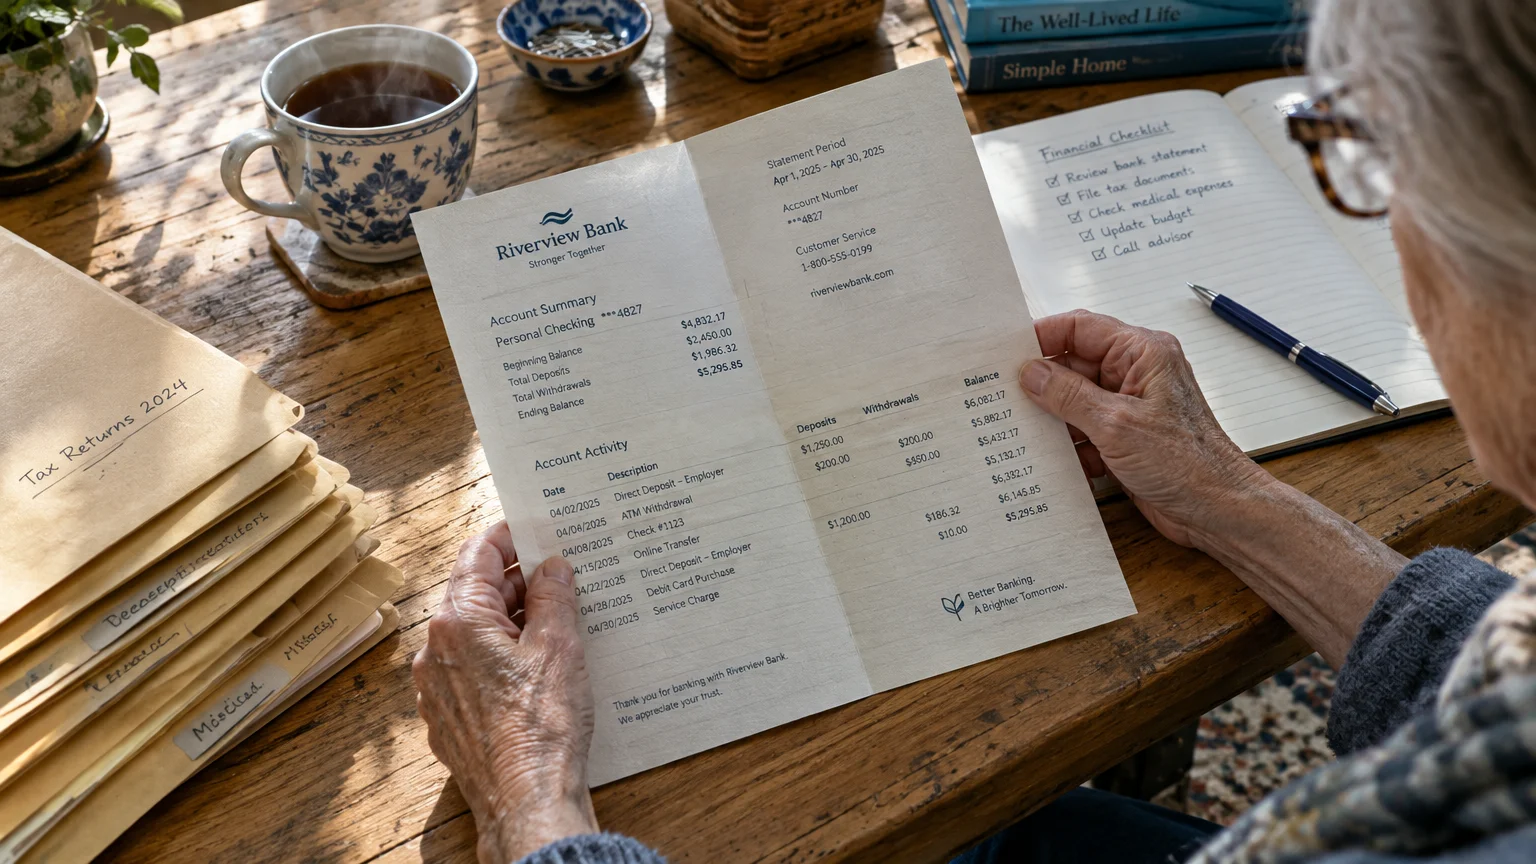 The Well-Lived Life
Simple Home
Riverview Bank
Stronger Together
Statement Period
Apr 1, 2025 – Apr 30, 2025
Account Number
***4827
Customer Service
1-800-555-0199
riverviewbank.com
Account Summary
Personal Checking ***4827
Beginning Balance $4,832.17
Total Deposits $2,450.00
Total Withdrawals $1,986.32
Ending Balance $5,295.85
Account Activity
Date Description Deposits Withdrawals Balance
04/02/2025 Direct Deposit – Employer $1,250.00 $6,082.17
04/06/2025 ATM Withdrawal $200.00 $200.00 $5,882.17
04/08/2025 Check #1123 $5,432.17
4/15/2025 Online Transfer $5,132.17
04/22/2025 Direct Deposit – Employer $1,200.00 $6,332.17
04/28/2025 Debit Card Purchase $186.32 $6,145.85
04/30/2025 Service Charge $10.00 $5,295.85
Thank you for banking with Riverview Bank.
We appreciate your trust.
Better Banking.
A Brighter Tomorrow.
Financial Checklist
☑ Review bank statement
☑ File tax documents
☑ Check medical expenses
☑ Update budget
☑ Call advisor
Tax Returns 2024